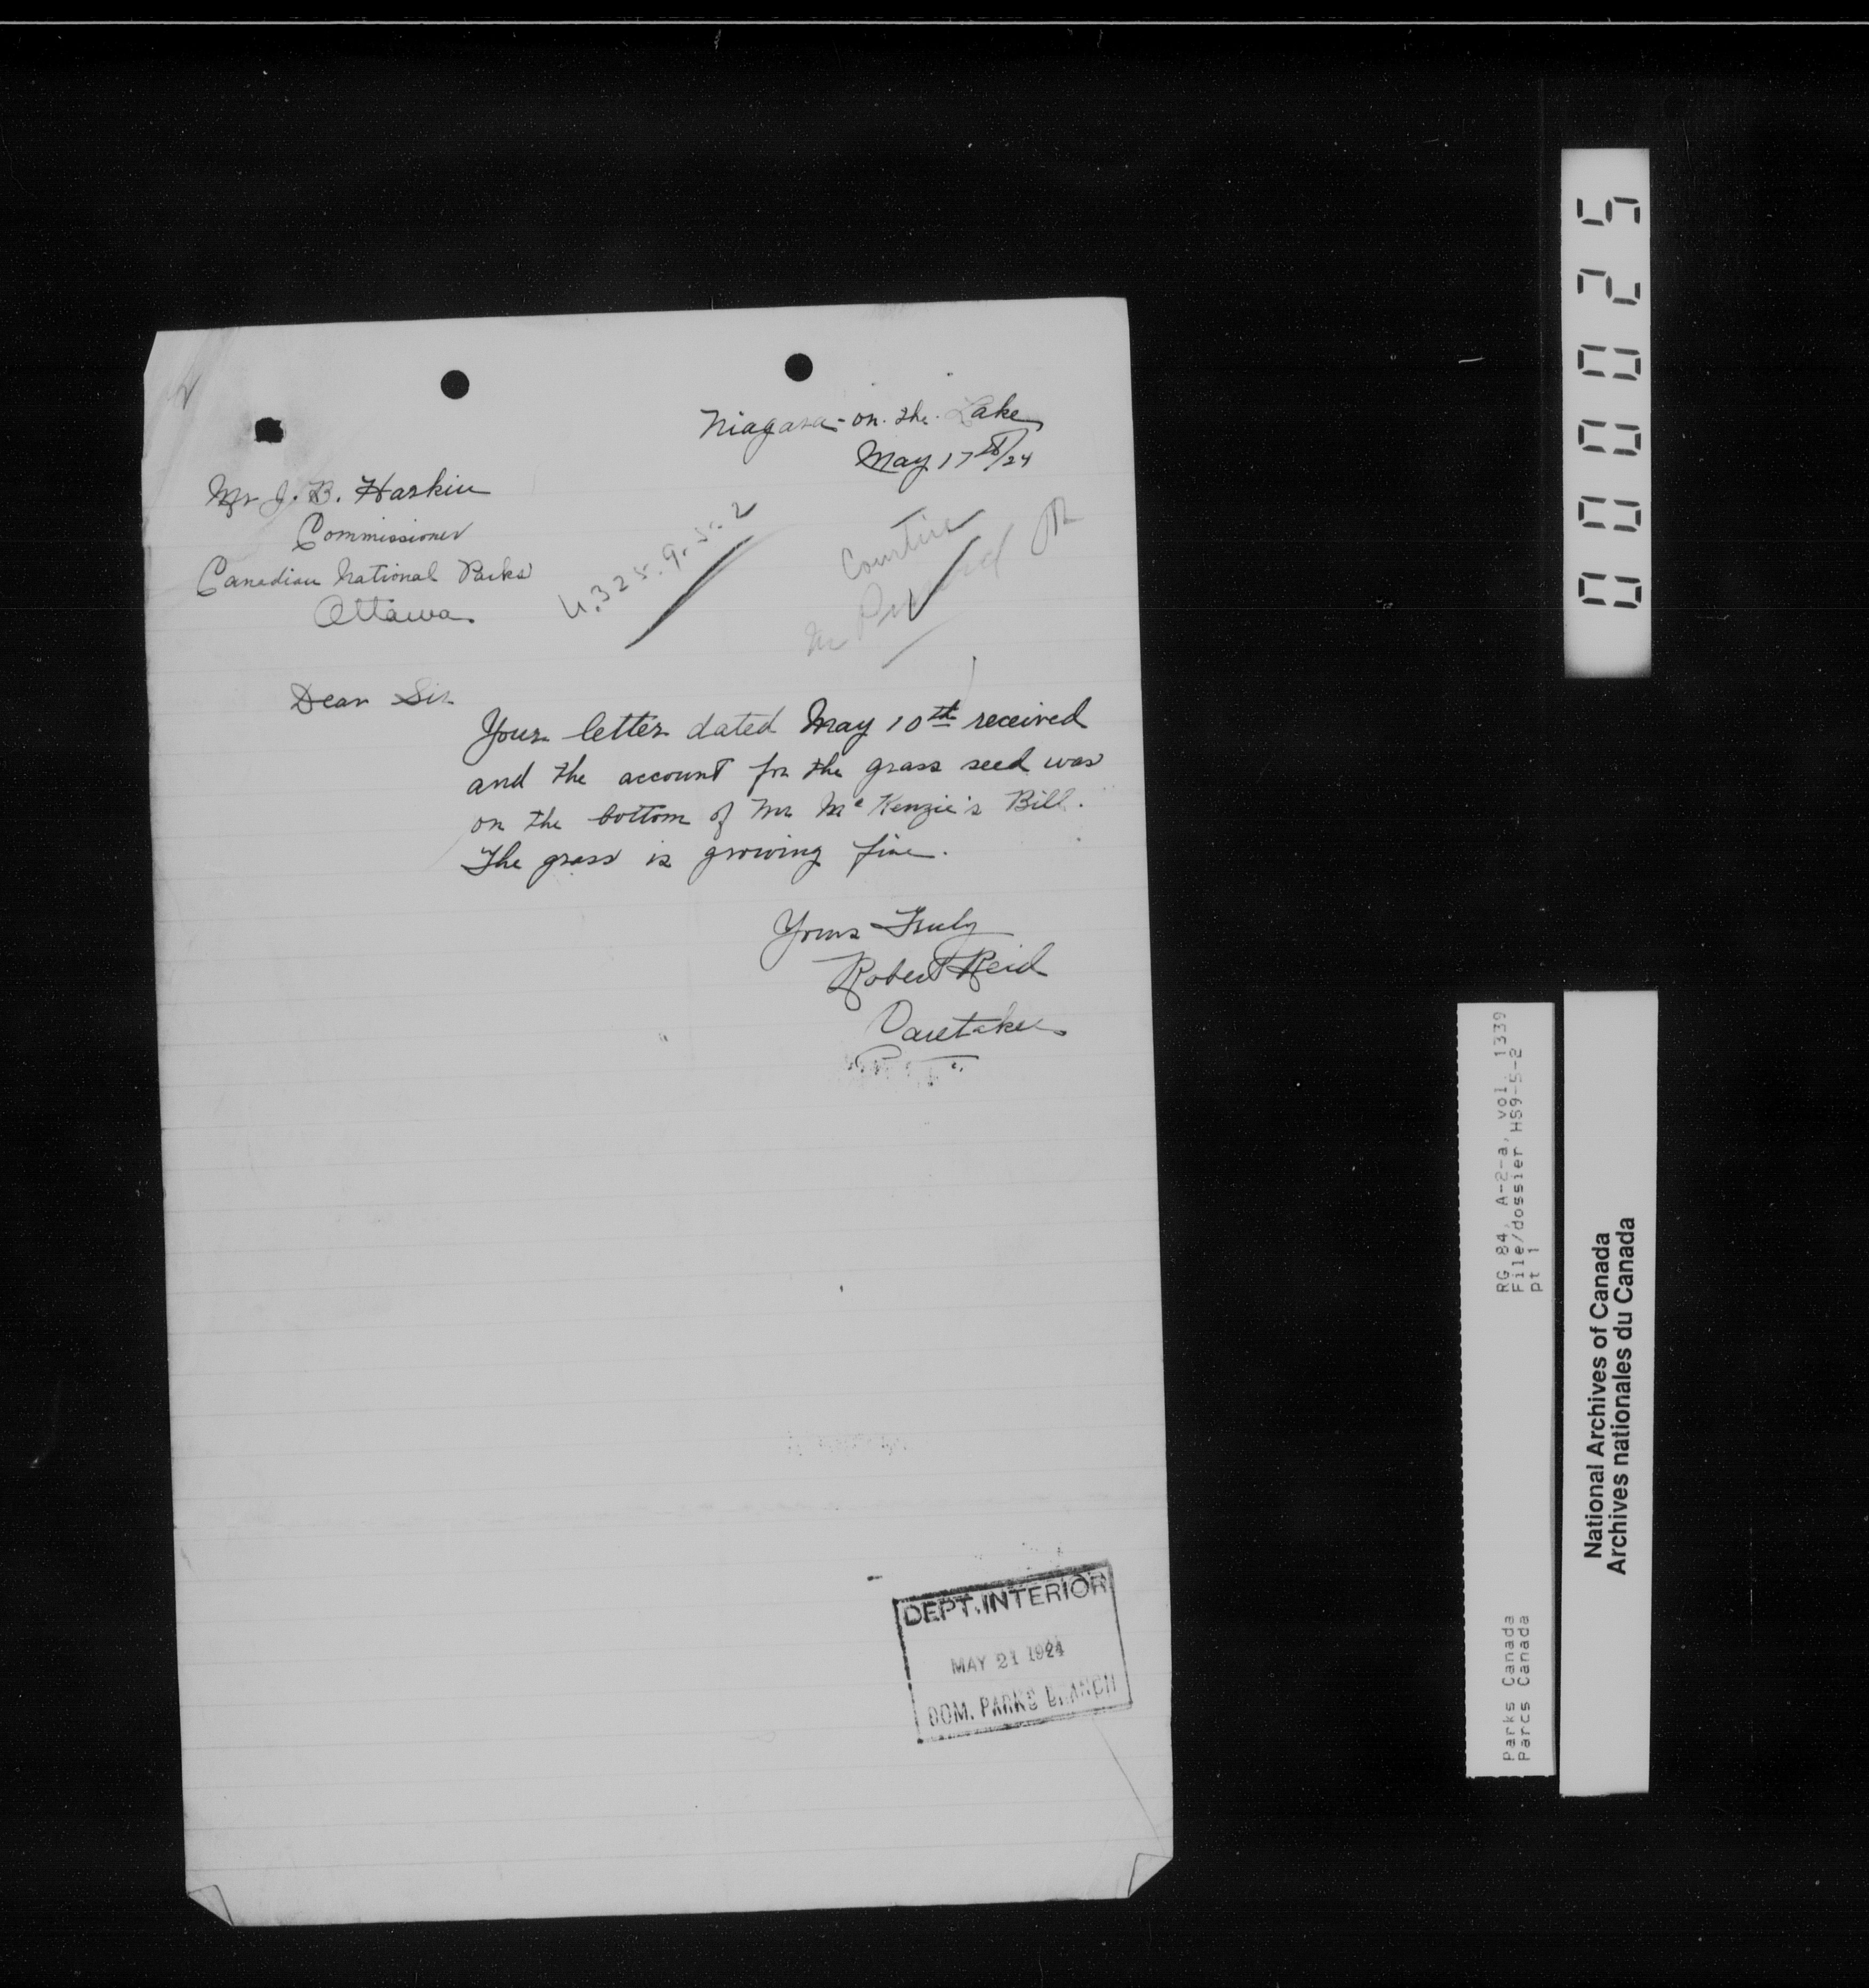 Niagara-on-the-Lake
May 17th/24
Mr J. B. Harkin
Commissioner
Canadian National Parks
Ottawa.
U.325.9.5.2
Dear Sir
Your letter dated May 10th received
and the account for the grass seed was
on the bottom of Mr McKenzie's Bill.
The grass is growing fine.
Yours Truly
Robert Reid
Caretaker
DEPT. INTERIOR
MAY 21 1924
DOM. PARKS BRANCH
000025
RG 84, A-2-a, vol. 1339
File/dossier HS9-5-2
pt 1
Parks Canada
Parcs Canada
National Archives of Canada
Archives nationales du Canada